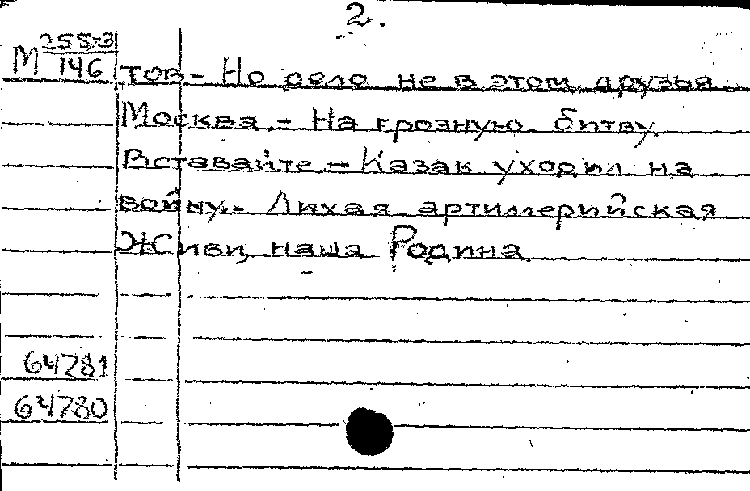 2.
М 255-3
146
тов.- Но дело не в этом, друзья.-
Москва.- На грозную битву.
Вставайте.- Казак уходил на
войну.- Лихая артиллерийская
Живи, наша Родина.
64781
64780